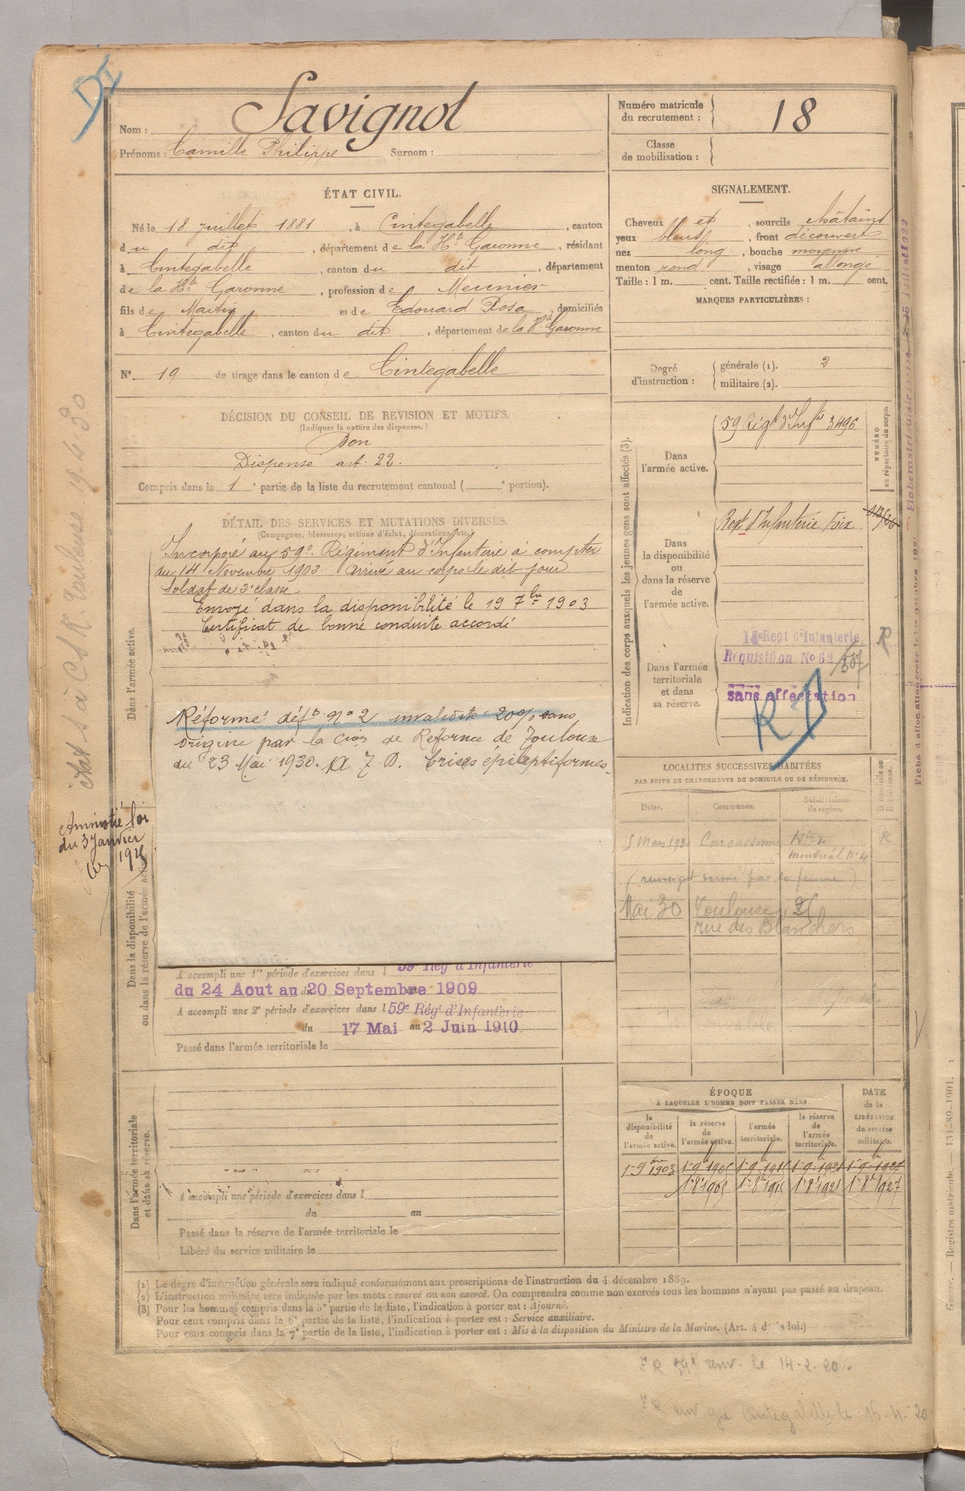 DI
Nom : Savignol
Prénoms : Camille Philippe Surnom :
Numéro matricule
du recrutement : 18
Classe
de mobilisation :
ÉTAT CIVIL.
Né le 18 juillet 1881, à Cintegabelle, canton
du dit, département de la Hte Garonne, résidant
à Cintegabelle, canton du dit, département
de la Hte Garonne, profession de Meunier
fils de Martin et de Edouard Rosa, domiciliés
à Cintegabelle, canton du dit, département de la Hte Garonne
N° 19 de tirage dans le canton de Cintegabelle
DÉCISION DU CONSEIL DE REVISION ET MOTIFS.
(Indiquer la nature des dispenses.)
Bon
Dispensé art. 22.
Compris dans la 1e partie de la liste du recrutement cantonal ( e portion).
SIGNALEMENT.
Cheveux et, sourcils châtains
yeux bleus, front découvert
nez long, bouche moyenne
menton rond, visage allongé
Taille : 1 m. cent. Taille rectifiée : 1 m. cent.
MARQUES PARTICULIÈRES :
Degré
d'instruction :
générale (1). 2
militaire (2).
DÉTAIL DES SERVICES ET MUTATIONS DIVERSES.
(Campagnes, blessures, actions d'éclat, décorations, etc.)
Dans l'armée active.
Incorporé au 59e Régiment d'Infanterie à compter
du 14 Novembre 1902 arrivé au corps le dit jour
Soldat de 2e classe
Envoyé dans la disponibilité le 19 7bre 1903
Certificat de bonne conduite accordé
Réformé déft n° 2 invalidité 20% sans
origine par la Cion de Réforme de Toulouse
du 23 Mai 1930. Crises épileptiformes.
Amnistié loi
du 3 Janvier
1925
Dans la disponibilité
ou dans la réserve de l'armée active
A accompli une 1re période d'exercices dans l 59e Rég d'Infanterie
du 24 Aout au 20 Septembre 1909
A accompli une 2e période d'exercices dans l 59e Rég' d'Infanterie
du 17 Mai au 2 Juin 1910
Passé dans l'armée territoriale le
Dans l'armée territoriale
et dans sa réserve.
A accompli une période d'exercices dans l
du au
Passé dans la réserve de l'armée territoriale le
Libéré du service militaire le
Indication des corps auxquels les jeunes gens sont affectés (3).
NUMÉRO
au répertoire du corps.
Dans
l'armée active.
59 Régt d'Infie 3496
Dans
la disponibilité
ou dans
la réserve
de
l'armée active.
Regt d'Infanterie Foix
Dans l'armée
territoriale
et dans
sa réserve.
Regt d'Infanterie
Requisition No 62
sans affectation
R
LOCALITÉS SUCCESSIVES HABITÉES
PAR SUITE DE CHANGEMENTS DE DOMICILE OU DE RÉSIDENCE.
Dates. Communes. Subdivisions
de région.
Carcassonne
Montréal N° 4
Mai 30 Toulouse
rue des Blanchers
ÉPOQUE
À LAQUELLE L'HOMME DOIT PASSER DANS
DATE
de la
LIBÉRATION
du service
militaire.
la
disponibilité
de
l'armée active.
la réserve
de
l'armée active.
l'armée
territoriale.
la réserve
de
l'armée
territoriale.
(1) Le degré d'instruction générale sera indiqué conformément aux prescriptions de l'instruction du 4 décembre 1889.
(2) L'instruction militaire sera indiquée par les mots : exercé ou non exercé. On comprendra comme non exercés tous les hommes n'ayant pas passé au drapeau.
(3) Pour les hommes compris dans la 5e partie de la liste, l'indication à porter est : Ajourné.
Pour ceux compris dans la 6e partie de la liste, l'indication à porter est : Service auxiliaire.
Pour ceux compris dans la 7e partie de la liste, l'indication à porter est : Mis à la disposition du Ministre de la Marine. (Art. 4 de la loi.)